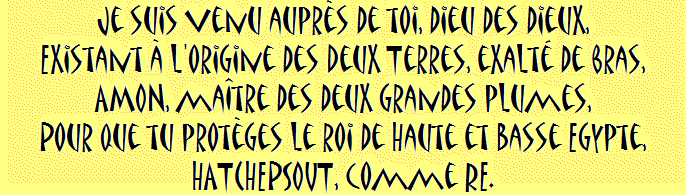 Je suis venu auprès de toi, dieu des dieux,
existant à l'origine des Deux Terres, exalté de bras,
Amon, maître des deux grandes plumes,
pour que tu protèges le roi de Haute et Basse Egypte,
Hatchepsout, comme Re.